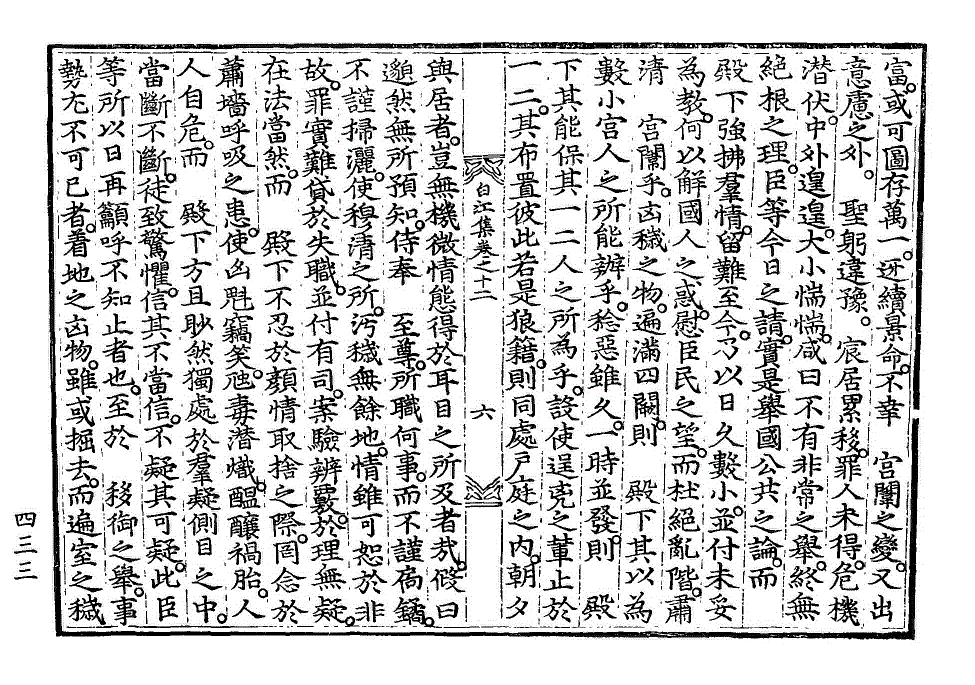 富。或可圖存萬一。迓續景命。不幸　宮闈之變。又出
意慮之外。　聖躬違豫。　宸居累移。罪人未得。危機
潛伏。中外遑遑。大小惴惴。咸曰不有非常之擧。終無
絕根之理。臣等今日之請。實是擧國公共之論。而
殿下強拂羣情。留難至今。乃以日久數小。並付未妥
為教。何以解國人之惑。慰臣民之望。而杜絕亂階。肅
清　宮闈乎。凶穢之物。遍滿四闕。則　殿下其以為
數小宮人之所能辦乎。稔惡雖久。一時並發。則　殿
下其能保其一二人之所為乎。設使逞兇之輩止於
一二。其布置彼此若是狼籍。則同處戶庭之內。朝夕
白江集卷之十二
六
與居者。豈無機微情態得於耳目之所及者哉。假曰
邈然無所預知。侍奉　至尊。所職何事。而不謹扃鐍。
不謹掃灑。使穆清之所。汚穢無餘地。情雖可恕於非
故。罪實難貸於失職。並付有司。案驗辨覈。於理無疑。
在法當然。而　殿下不忍於顔情取捨之際。罔念於
蕭墻呼吸之患。使凶魁竊笑。虺毒潛熾。醞釀禍胎。人
人自危。而　殿下方且眇然獨處於羣疑側目之中。
當斷不斷。徒致驚懼。信其不當信。不疑其可疑。此臣
等所以日再籲呼不知止者也。至於　移御之擧。事
勢尤不可已者。着地之凶物。雖或掘去。而遍室之穢
四三三